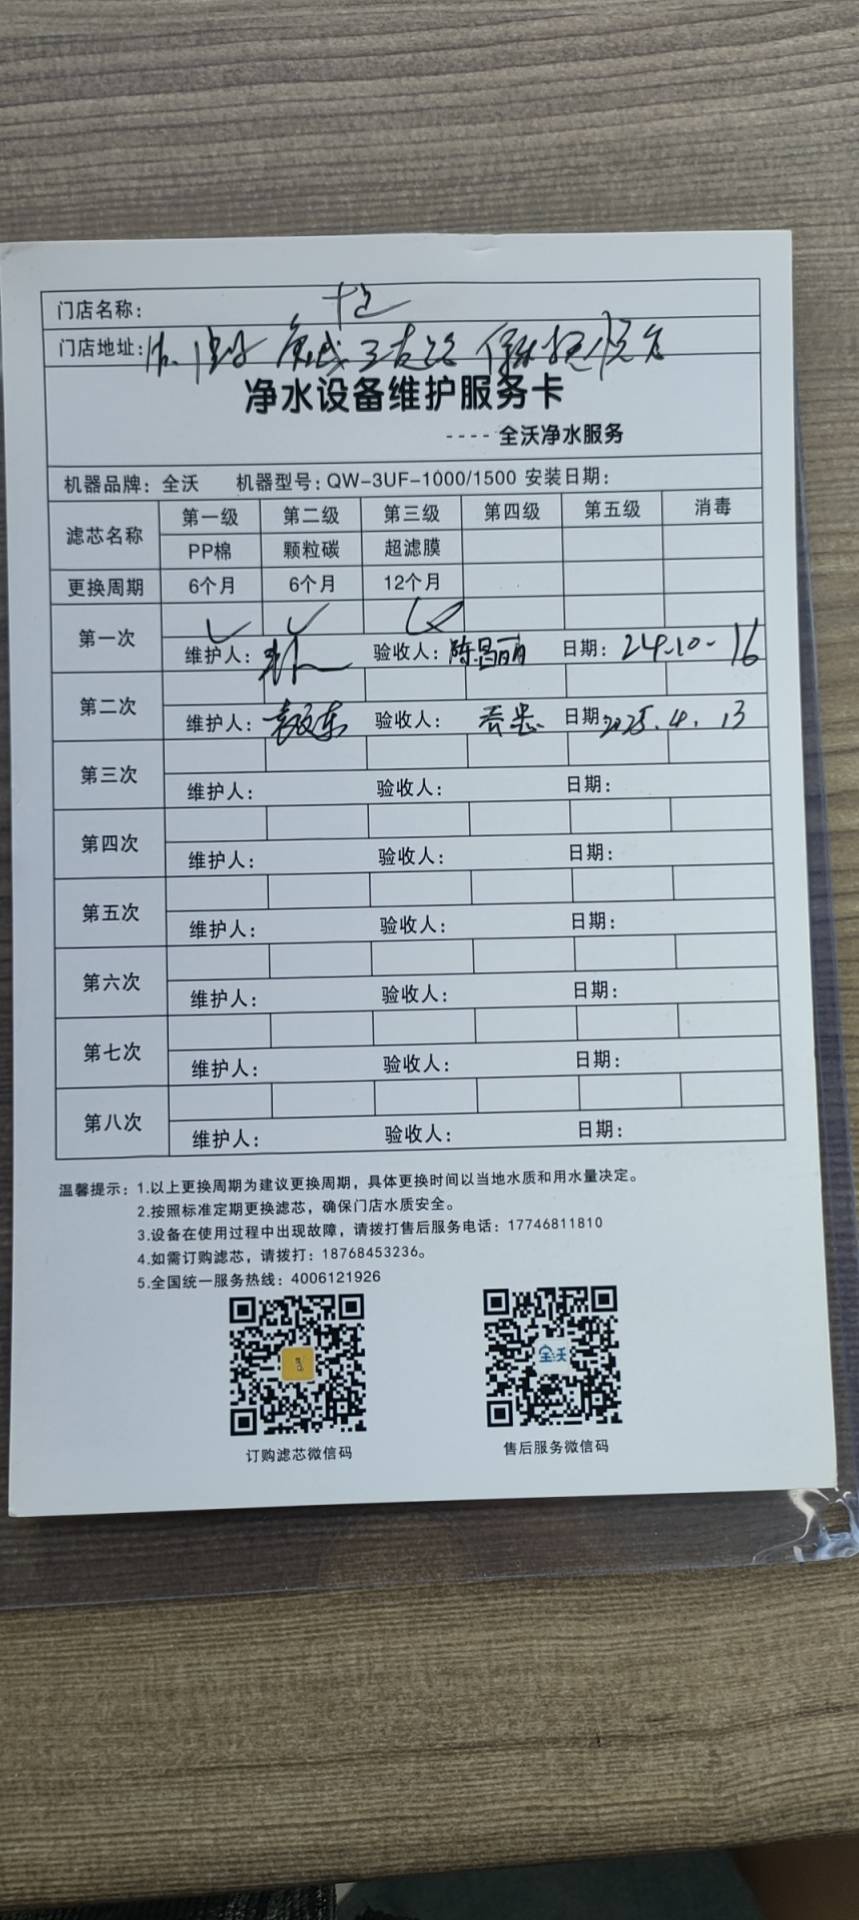 门店名称:
门店地址:
净水设备维护服务卡
----全沃净水服务
机器品牌: 全沃 机器型号: QW-3UF-1000/1500 安装日期:
滤芯名称 第一级 第二级 第三级 第四级 第五级 消毒
PP棉 颗粒碳 超滤膜
更换周期 6个月 6个月 12个月
第一次
维护人: 验收人: 陈昌丽 日期: 24.10-16
第二次
维护人: 验收人: 日期: 2025.4.13
第三次
维护人: 验收人: 日期:
第四次
维护人: 验收人: 日期:
第五次
维护人: 验收人: 日期:
第六次
维护人: 验收人: 日期:
第七次
维护人: 验收人: 日期:
第八次
维护人: 验收人: 日期:
温馨提示: 1.以上更换周期为建议更换周期，具体更换时间以当地水质和用水量决定。
2.按照标准定期更换滤芯，确保门店水质安全。
3.设备在使用过程中出现故障，请拨打售后服务电话: 17746811810
4.如需订购滤芯，请拨打: 18768453236。
5.全国统一服务热线: 4006121926
全沃
订购滤芯微信码 售后服务微信码